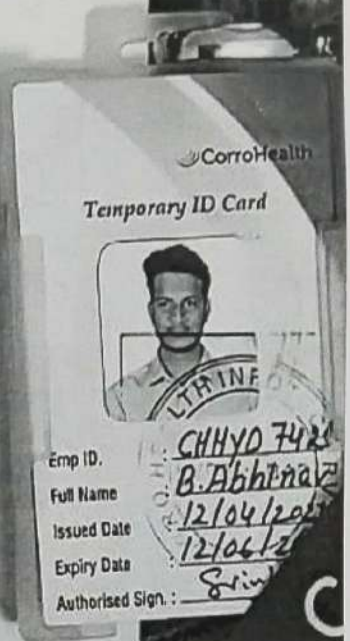 CorroHealth
Temporary ID Card
LTH INFO
Emp ID. : CHHYD 742
Full Name : B. Abhinav
Issued Date : 12/04/202
Expiry Date : 12/06/2
Authorised Sign. : Srini